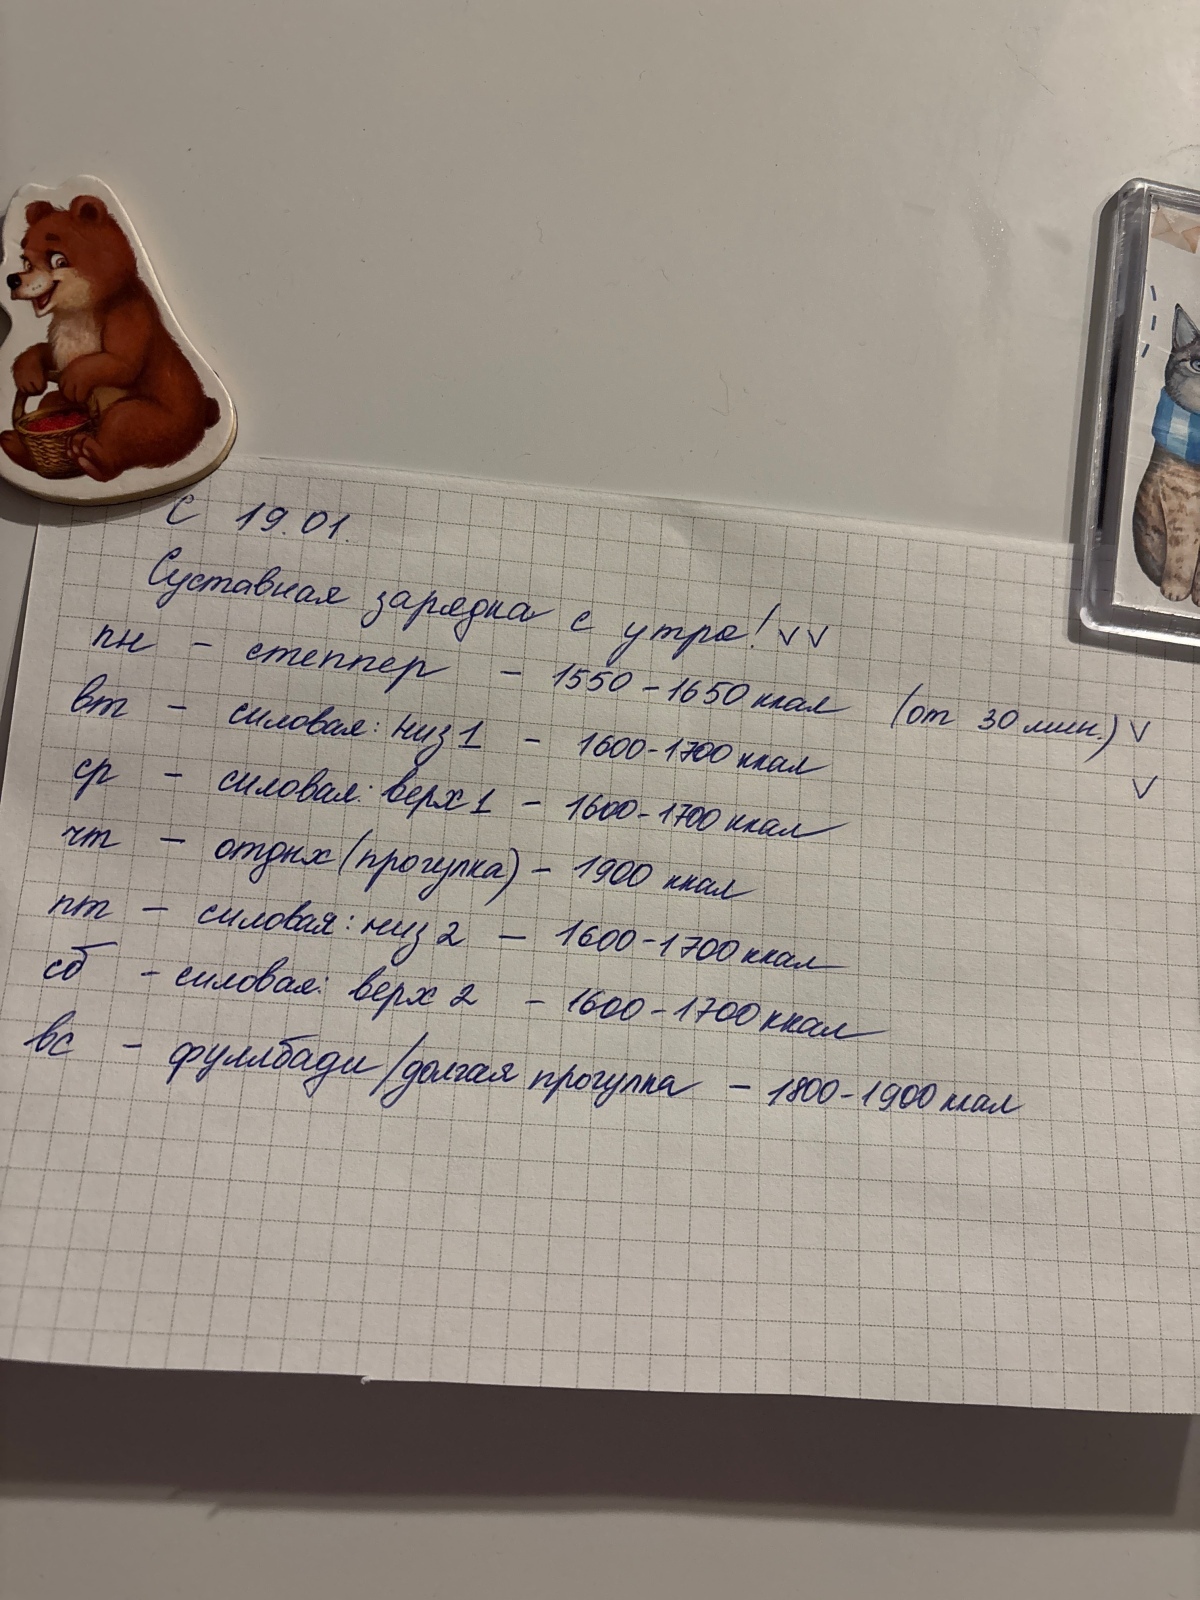 С 19.01.
Суставная зарядка с утра! v v
пн - степпер - 1550-1650 ккал (от 30 мин.) v
вт - силовая: низ 1 - 1600-1700 ккал v
ср - силовая: верх 1 - 1600-1700 ккал
чт - отдых (прогулка) - 1900 ккал
пт - силовая: низ 2 - 1600-1700 ккал
сб - силовая: верх 2 - 1600-1700 ккал
вс - фуллбади/долгая прогулка - 1800-1900 ккал